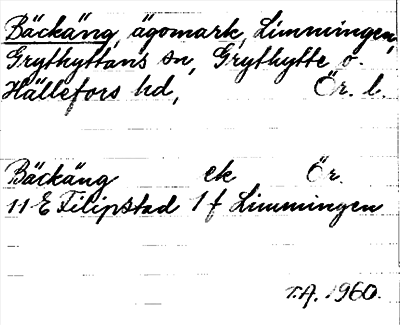 Bäckäng, ägomark, Limmingen,
Grythyttans sn, Grythytte o.
Hällefors hd, Ör. l.
Bäckäng ek Ör.
11 E Filipstad 1 f Limmingen
T.A. 1960.